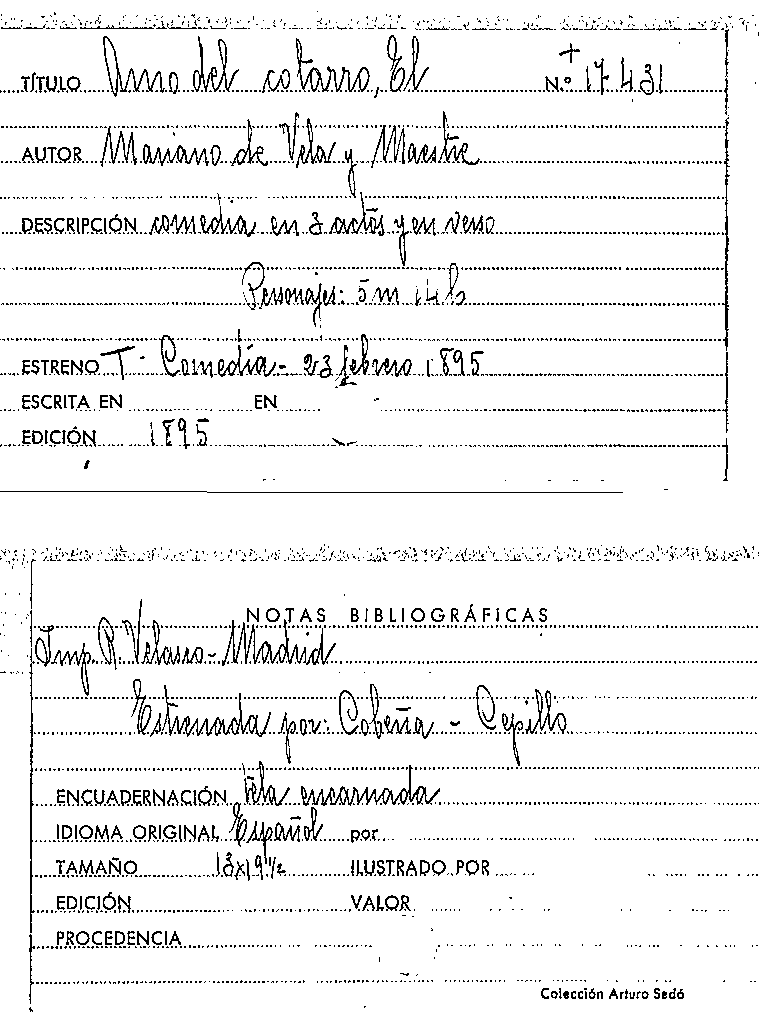 TÍTULO Amo del cotarro, El N.º 17431
AUTOR Mariano de Vela y Maestre
DESCRIPCIÓN comedia en 3 actos y en verso
Personajes: 5 m 14 h
ESTRENO T. Comedia - 23 febrero 1895
ESCRITA EN EN
EDICIÓN 1895
NOTAS BIBLIOGRÁFICAS
Imp. R. Velasco - Madrid
Estrenada por: Cobeña - Cepillo
ENCUADERNACIÓN Tela encarnada
IDIOMA ORIGINAL Español por
TAMAÑO 13x19 1/2 ILUSTRADO POR
EDICIÓN VALOR
PROCEDENCIA
Colección Arturo Sedó